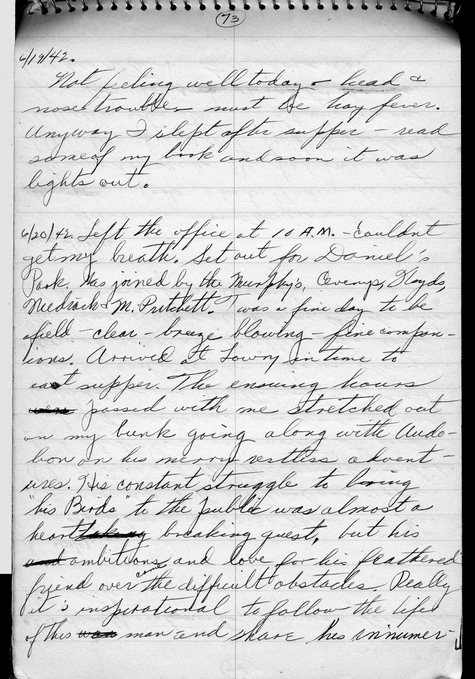 73
6/19/42.
Not feeling well today - head &
nose trouble, must be hay fever.
Anyway I slept after supper - read
some of my book and soon it was
lights out.
6/20/42. Left the office at 10 A.M. - couldn't
get my breath. Set out for Daniel's
Park. Was joined by the Murphy's, Lloyds,
& M. Pritchett. T'was a fine day to be
afield - clear - breeze blowing - fine compan-
ions. Arrived at Lowry in time to
eat supper. The ensuing hours
were passed with me stretched out
on my bunk going along with Audo-
bon on his merry restless advent-
ures. His constant struggle to bring
"his Birds" to the public was almost a
heart breaking quest, but his
and ambitions, and love for his feathered
friend over the difficult obstacles. Really
it's inspirational to follow the life
of this was man and share his innumer-